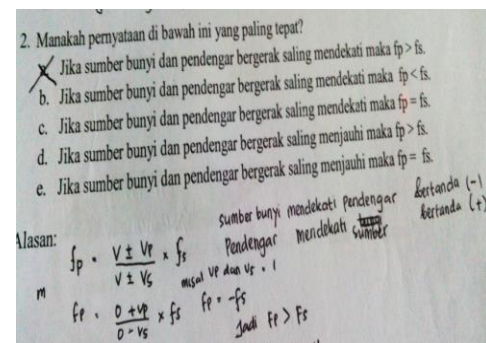 2. Manakah pernyataan di bawah ini yang paling tepat?
Jika sumber bunyi dan pendengar bergerak saling mendekati maka fp > fs.
b. Jika sumber bunyi dan pendengar bergerak saling mendekati maka fp < fs.
c. Jika sumber bunyi dan pendengar bergerak saling mendekati maka fp = fs.
d. Jika sumber bunyi dan pendengar bergerak saling menjauhi maka fp > fs.
e. Jika sumber bunyi dan pendengar bergerak saling menjauhi maka fp = fs.
Alasan:
sumber bunyi mendekati pendengar bertanda (-)
Pendengar mendekati sumber bertanda (+)
fp = V ± Vp / V ± Vs × fs
misal Vp dan Vs = 1
m
fp = 0 + Vp / 0 - Vs × fs fp = -fs
Jadi Fp > Fs